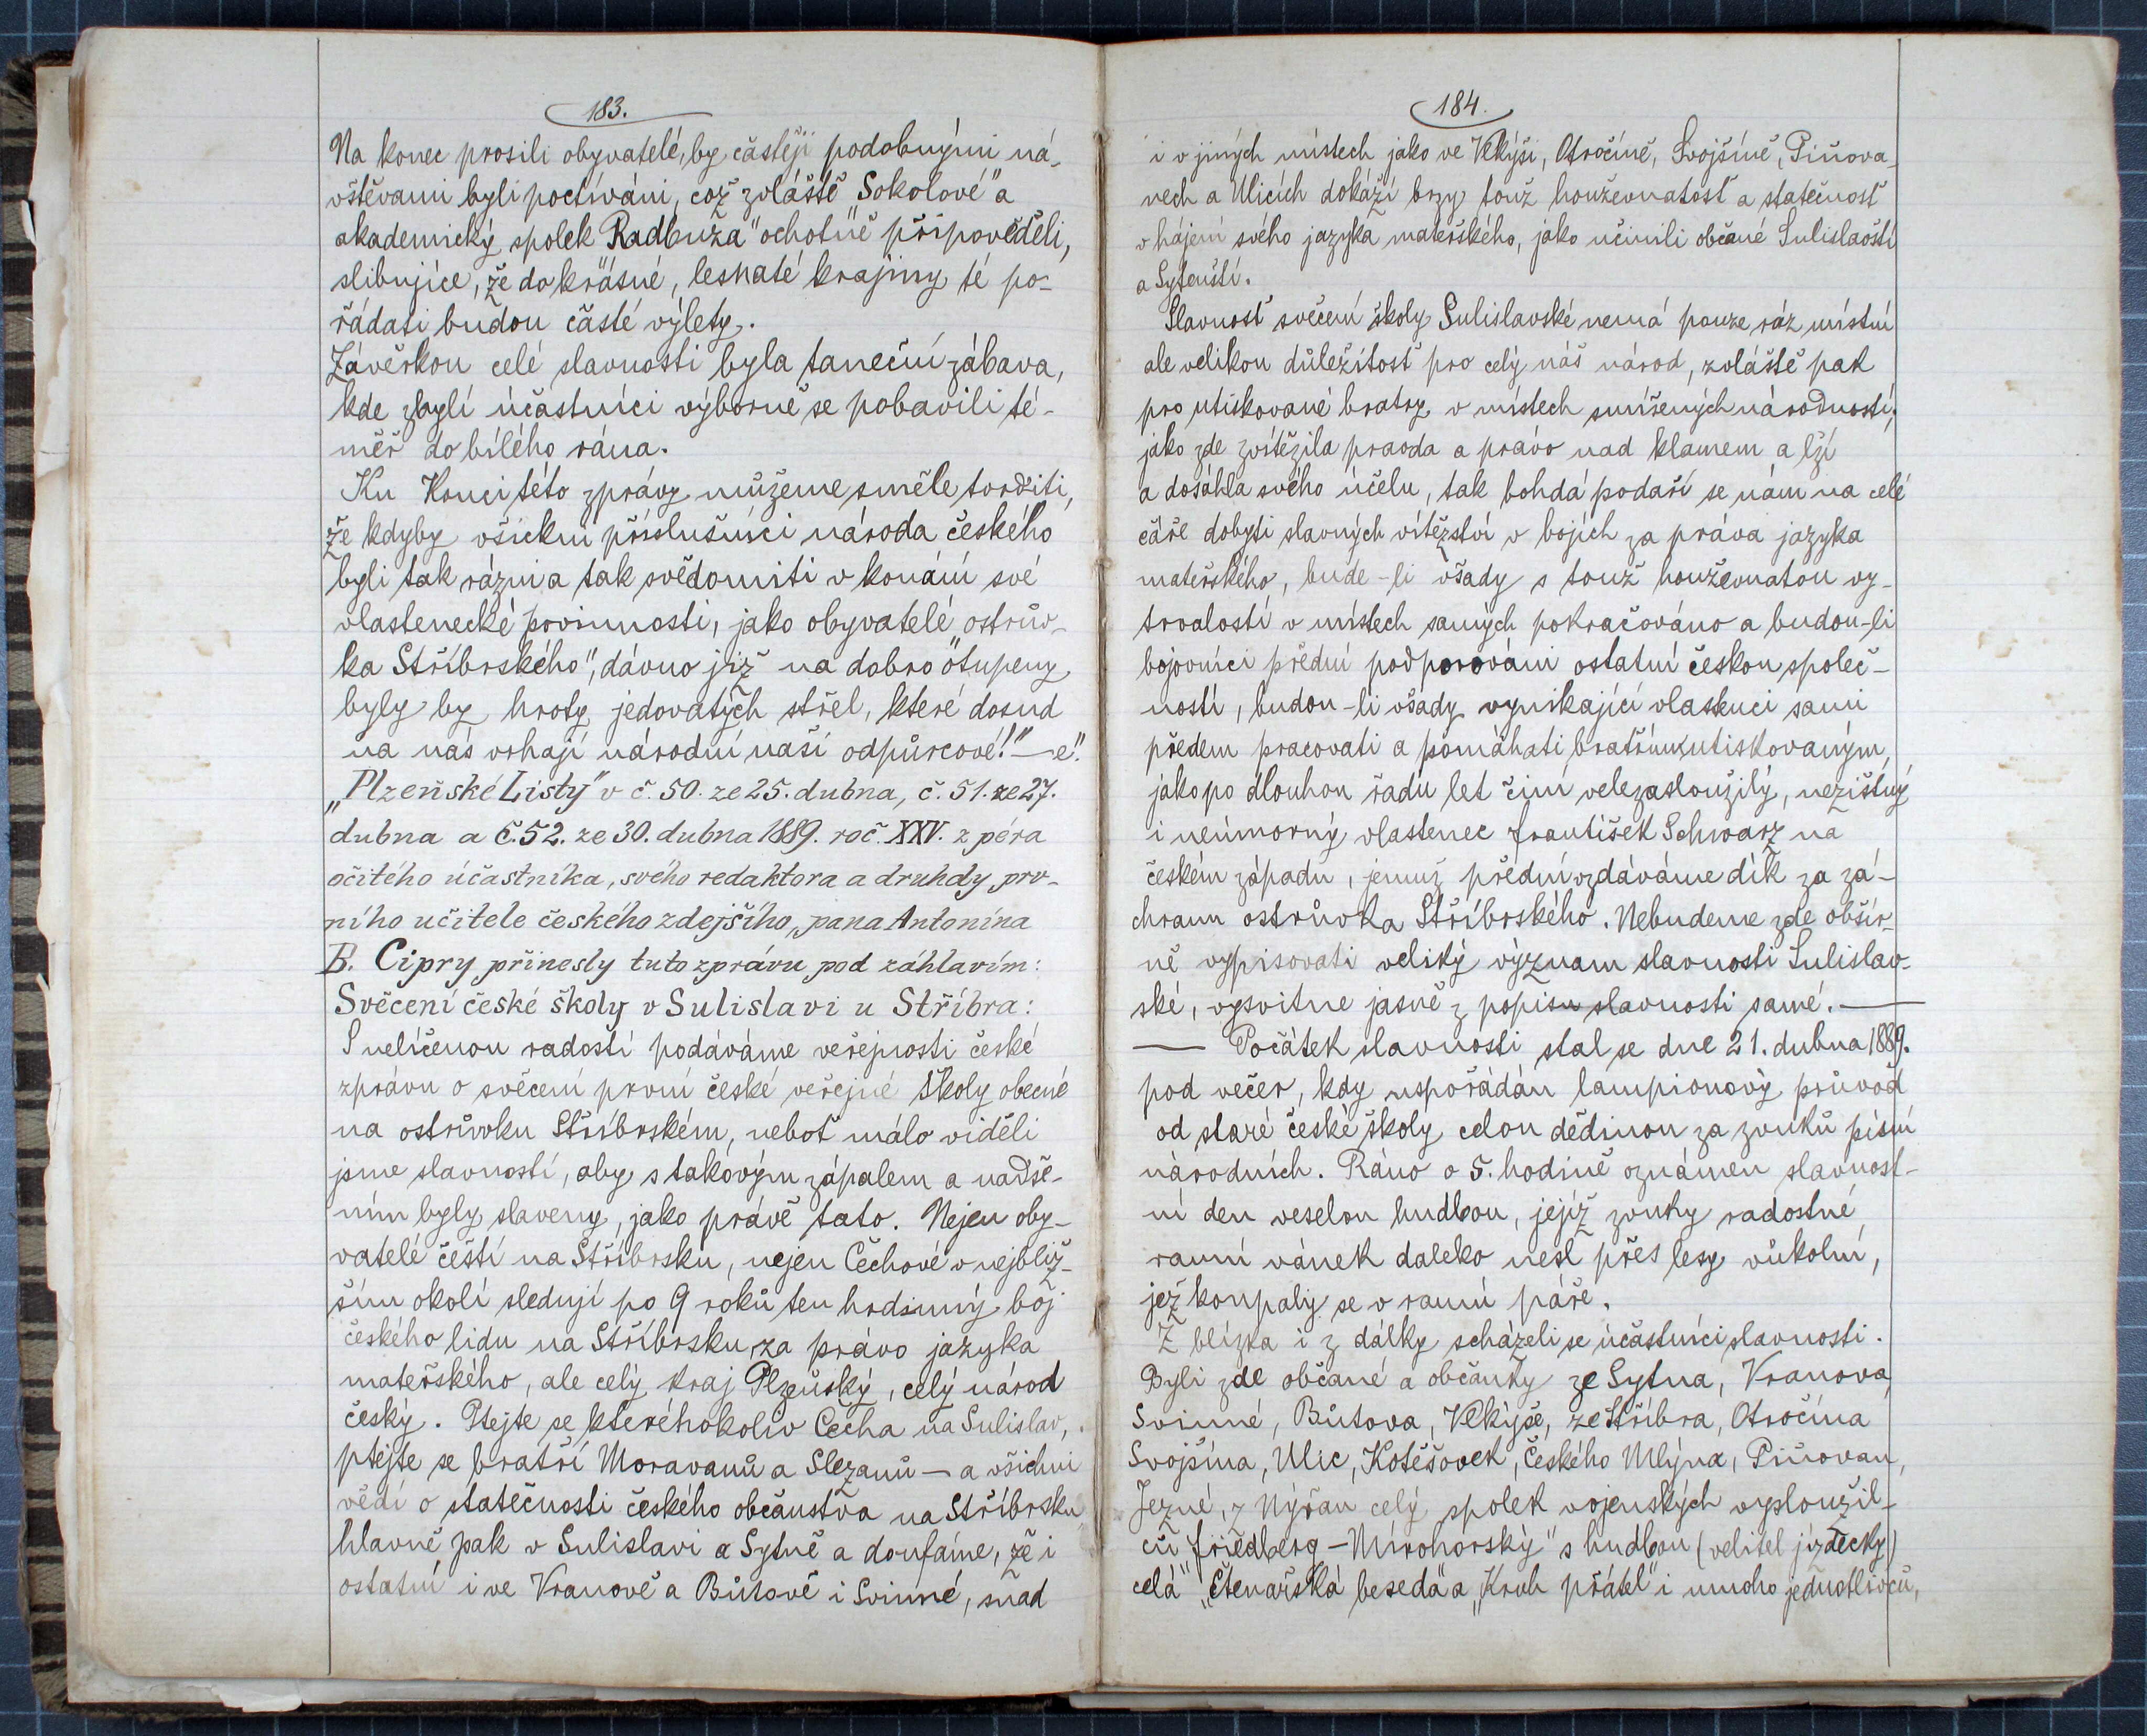 183.
Na konec prosili obyvatelé, by častěji podobnými ná-
vštěvami byli poctíváni, což zvláště „Sokolové" a
akademický spolek „Radbuza" ochotně přípověděli,
slibujíce, že do krásné, lesnaté krajiny té po-
řádati budou časté výlety.
Závěrkou celé slavnosti byla taneční zábava,
kde zbylí účastníci výborně se pobavili té-
měř do bílého rána.
Ku Konci této zprávy můžeme směle tvrditi,
že kdyby všickni příslušníci národa českého
byli tak rázni a tak svědomiti v konání své
vlastenecké povinnosti, jako obyvatelé „ostrův-
ka Stříbrského", dávno již na dobro otupeny
byly by hroty jedovatých střel, které dosud
na nás vrhají národní naši odpůrcové!" —e".
„Plzeňské Listy" v č. 50. ze 25. dubna, č. 51. ze 27.
dubna a č. 52. ze 30. dubna 1889. roč. XXV. z péra
očitého účastníka, svého redaktora a druhdy prv-
ního učitele českého zdejšího, pana Antonína
B. Cipry přinesly tuto zprávu pod záhlavím:
Svěcení české školy v Sulislavi u Stříbra:
S nelíčenou radostí podáváme veřejnosti české
zprávu o svěcení první české veřejné školy obecné
na ostrůvku Stříbrském, neboť málo viděli
jsme slavností, aby s takovým zápalem a nadše-
ním byly slaveny, jako právě tato. Nejen oby-
vatelé čeští na Stříbrsku, nejen Čechové v nejbliž-
ším okolí sledují po 9 roků ten hrdinný boj
českého lidu na Stříbrsku za právo jazyka
mateřského, ale celý kraj Plzeňský, celý národ
český. Ptejte se kteréhokoliv Čecha na Sulislav,
ptejte se bratří Moravanů a Slezanů — a všichni
vědí o statečnosti českého občanstva na Stříbrsku
hlavně pak v Sulislavi a Sytně a doufáme, že i
ostatní i ve Vranově a Bůtově i Svinné, snad
184.
i v jiných místech jako ve Vlkýši, Otročíně, Svojšíně, Piňova-
nech a Ulicích dokáží brzy touž houževnatost a statečnosť
v hájení svého jazyka mateřského, jako učinili občané Sulislavští
a Sytenští.
Slavnosť svěcení školy Sulislavské nemá pouze ráz místní
ale velikou důležitosť pro celý náš národ, zvláště pak
pro utiskované bratry v místech smíšených národností;
jako zde zvítězila pravda a právo nad klamem a lží
a dosáhla svého účelu, tak bohdá podaří se nám na celé
čáře dobyti slavných vítězství v bojích za práva jazyka
mateřského, bude-li všady s touž houževnatou vy-
trvalostí v místech samých pokračováno a budou-li
bojovníci přední podporováni ostatní českou společ-
ností, budou-li všady vynikající vlastenci sami
předem pracovati a pomáhati bratřím utiskovaným,
jako po dlouhou řadu let činí velezasloužilý, nezištný
i neúmorný vlastenec František Schwarz na
českém západu, jemuž přední vzdáváme dík za zá-
chranu ostrůvka Stříbrského. Nebudeme zde obšír-
ně vypisovati veliký význam slavnosti Sulislav-
ské, vysvitne jasně z popisu slavnosti samé. —
— Počátek slavnosti stal se dne 21. dubna 1889.
pod večer, kdy uspořádán lampionový průvod
od staré české školy celou dědinou za zvuků písní
národních. Ráno o 5. hodině oznámen slavnost-
ní den veselou hudbou, jejíž zvuky radostné
ranní vánek daleko nesl přes lesy vůkolní,
jež koupaly se v ranní páře.
Z blízka i z dálky scházeli se účastníci slavnosti.
Byli zde občané a občanky ze Sytna, Vranova,
Svinné, Bůtova, Vlkýše, ze Stříbra, Otročína
Svojšína, Ulic, Kotěšovek, Českého Mlýna, Piňovan,
Jezné, z Nýřan celý spolek vojenských vysloužil-
ců „Friedberg — Mírohorský" s hudbou (velitel jízdecky)
celá „Čtenářská beseda" a „Kruh přátel" i mnoho jednotlivců,